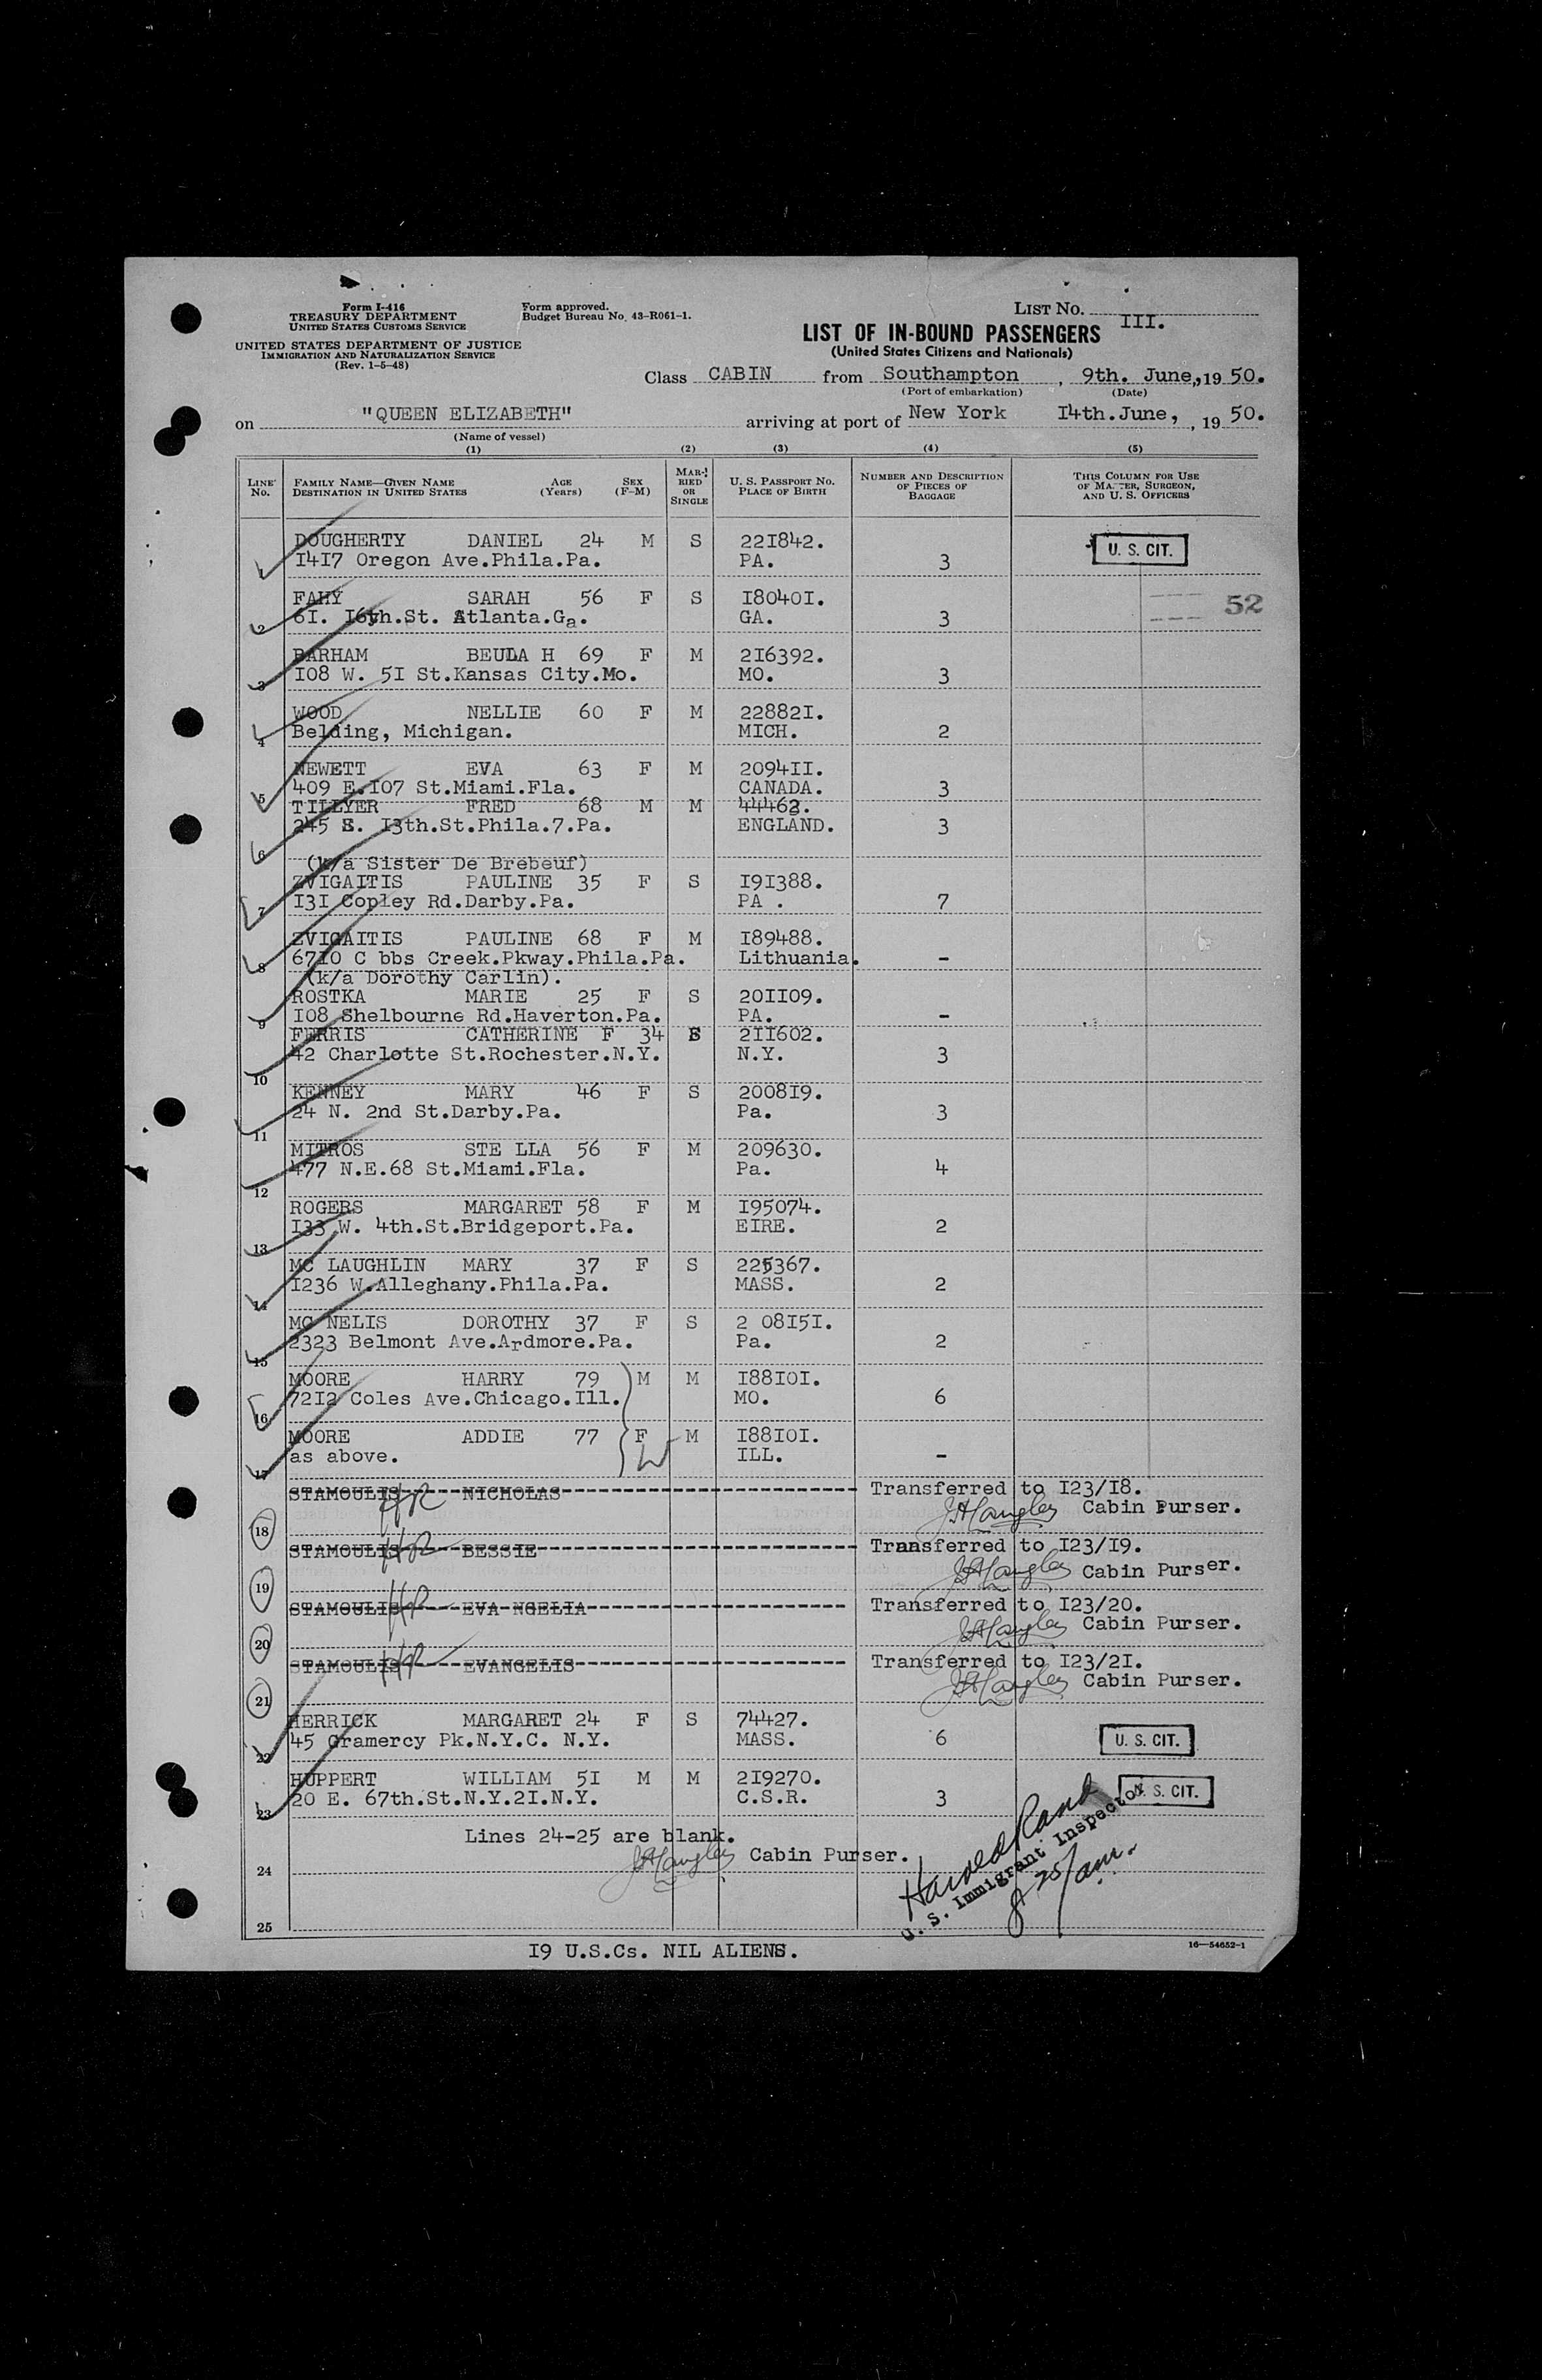 Form I-416
TREASURY DEPARTMENT
UNITED STATES CUSTOMS SERVICE
UNITED STATES DEPARTMENT OF JUSTICE
IMMIGRATION AND NATURALIZATION SERVICE
(Rev. 1-5-48)
Form approved.
Budget Bureau No. 43-R061-1.
LIST NO. III.
LIST OF IN-BOUND PASSENGERS
(United States Citizens and Nationals)
Class CABIN from Southampton, 9th. June,, 19 50.
(Port of embarkation) (Date)
on "QUEEN ELIZABETH" arriving at port of New York 14th.June, , 19 50.
(Name of vessel)
(1) (2) (3) (4) (5)
LINE NO. FAMILY NAME—GIVEN NAME DESTINATION IN UNITED STATES AGE (Years) SEX (F-M) MARRIED OR SINGLE U. S. PASSPORT NO. PLACE OF BIRTH NUMBER AND DESCRIPTION OF PIECES OF BAGGAGE THIS COLUMN FOR USE OF MASTER, SURGEON, AND U. S. OFFICERS
DOUGHERTY DANIEL 24 M S 221842. U. S. CIT.
1 1417 Oregon Ave.Phila.Pa. PA. 3
FAHY SARAH 56 F S 180401. 52
2 61. 16th.St. Atlanta.Ga. GA. 3
BARHAM BEULA H 69 F M 216392.
3 108 W. 51 St.Kansas City.Mo. MO. 3
WOOD NELLIE 60 F M 228821.
4 Belding, Michigan. MICH. 2
NEWETT EVA 63 F M 209411.
5 409 E.107 St.Miami.Fla. CANADA. 3
TILLYER FRED 68 M M 44462.
6 245 S. 13th.St.Phila.7.Pa. ENGLAND. 3
(k/a Sister De Brebeuf)
ZVIGAITIS PAULINE 35 F S 191388.
7 131 Copley Rd.Darby.Pa. PA . 7
ZVIGAITIS PAULINE 68 F M 189488.
8 6710 C bbs Creek.Pkway.Phila.Pa. Lithuania. -
(k/a Dorothy Carlin).
ROSTKA MARIE 25 F S 201109.
9 108 Shelbourne Rd.Haverton.Pa. PA. -
FERRIS CATHERINE F 34 S 211602.
10 42 Charlotte St.Rochester.N.Y. N.Y. 3
KENNEY MARY 46 F S 200819.
11 24 N. 2nd St.Darby.Pa. Pa. 3
MITROS STE LLA 56 F M 209630.
12 477 N.E.68 St.Miami.Fla. Pa. 4
ROGERS MARGARET 58 F M 195074.
13 133 W. 4th.St.Bridgeport.Pa. EIRE. 2
MC LAUGHLIN MARY 37 F S 225367.
14 1236 W.Alleghany.Phila.Pa. MASS. 2
MC NELIS DOROTHY 37 F S 2 08151.
15 2323 Belmont Ave.Ardmore.Pa. Pa. 2
MOORE HARRY 79 M M 188101.
16 7212 Coles Ave.Chicago.Ill. MO. 6
MOORE ADDIE 77 F M 188101.
17 as above. ILL. -
STAMOULIS HR NICHOLAS Transferred to 123/18.
18 JHLangley Cabin Purser.
STAMOULIS HR BESSIE Transferred to 123/19.
19 JHLangley Cabin Purser.
STAMOULIS HR EVA NGELIA Transferred to 123/20.
20 JHLangley Cabin Purser.
STAMOULIS HR EVANGELIS Transferred to 123/21.
21 JHLangley Cabin Purser.
HERRICK MARGARET 24 F S 74427.
22 45 Gramercy Pk.N.Y.C. N.Y. MASS. 6 U. S. CIT.
HUPPERT WILLIAM 51 M M 219270.
23 20 E. 67th.St.N.Y.21.N.Y. C.S.R. 3 U. S. CIT.
Lines 24-25 are blank.
24 JHLangley Cabin Purser.
Harold Rand
U. S. Immigrant Inspector
8 25/am.
25
19 U.S.Cs. NIL ALIENS.
16—54652-1